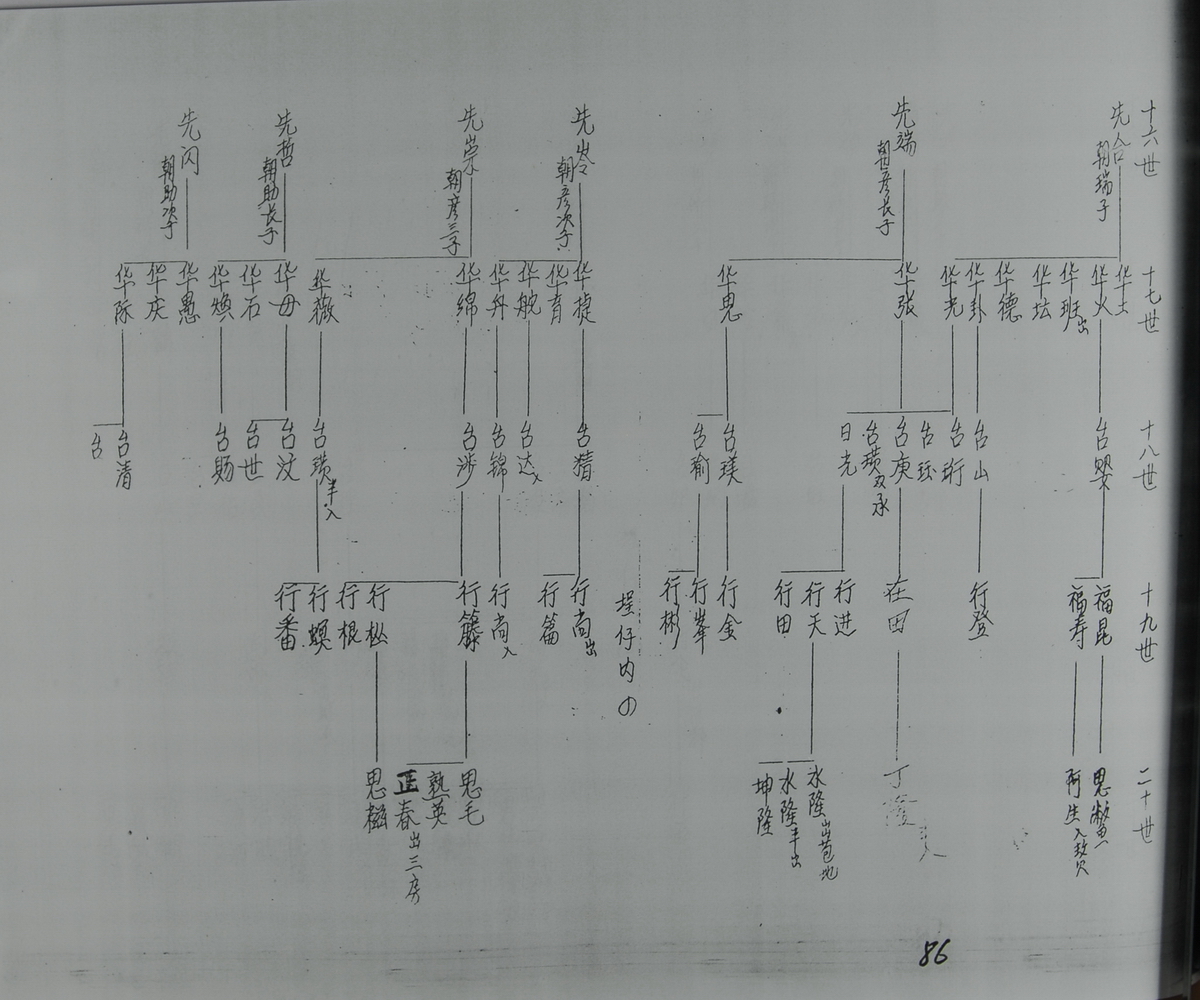 十六世
先
朝瑞子
先端
朝彦長子
先岺
朝彦次子
先崇
朝彦三子
先哲
朝助長子
先闪
朝助次子
十七世
华士
华火
华班出
华坛
华德
华卦
华光
华张
华思
华捷
华育
华舵
华丹
华绵
华薇
华毋
华石
华焕
华愚
华庆
华际
十八世
台婴
台山
台珩
台珏
台庚
台璜双承
日光
台瑛
台瑜
台猜
台达入
台锦
台涉
台璜半入
台汶
台世
台赐
台清
台
十九世
福昆
福寿
行登
在田
行进
行天
行田
行金
行峯
行彬
埕仔内
行尚出
行篇
行尚入
行籐
行松
行根
行螟
行番
二十世
思
阿生入
丁隆
半入
水隆出
水隆半出
坤隆
思毛
熟英
正春出三房
思
86